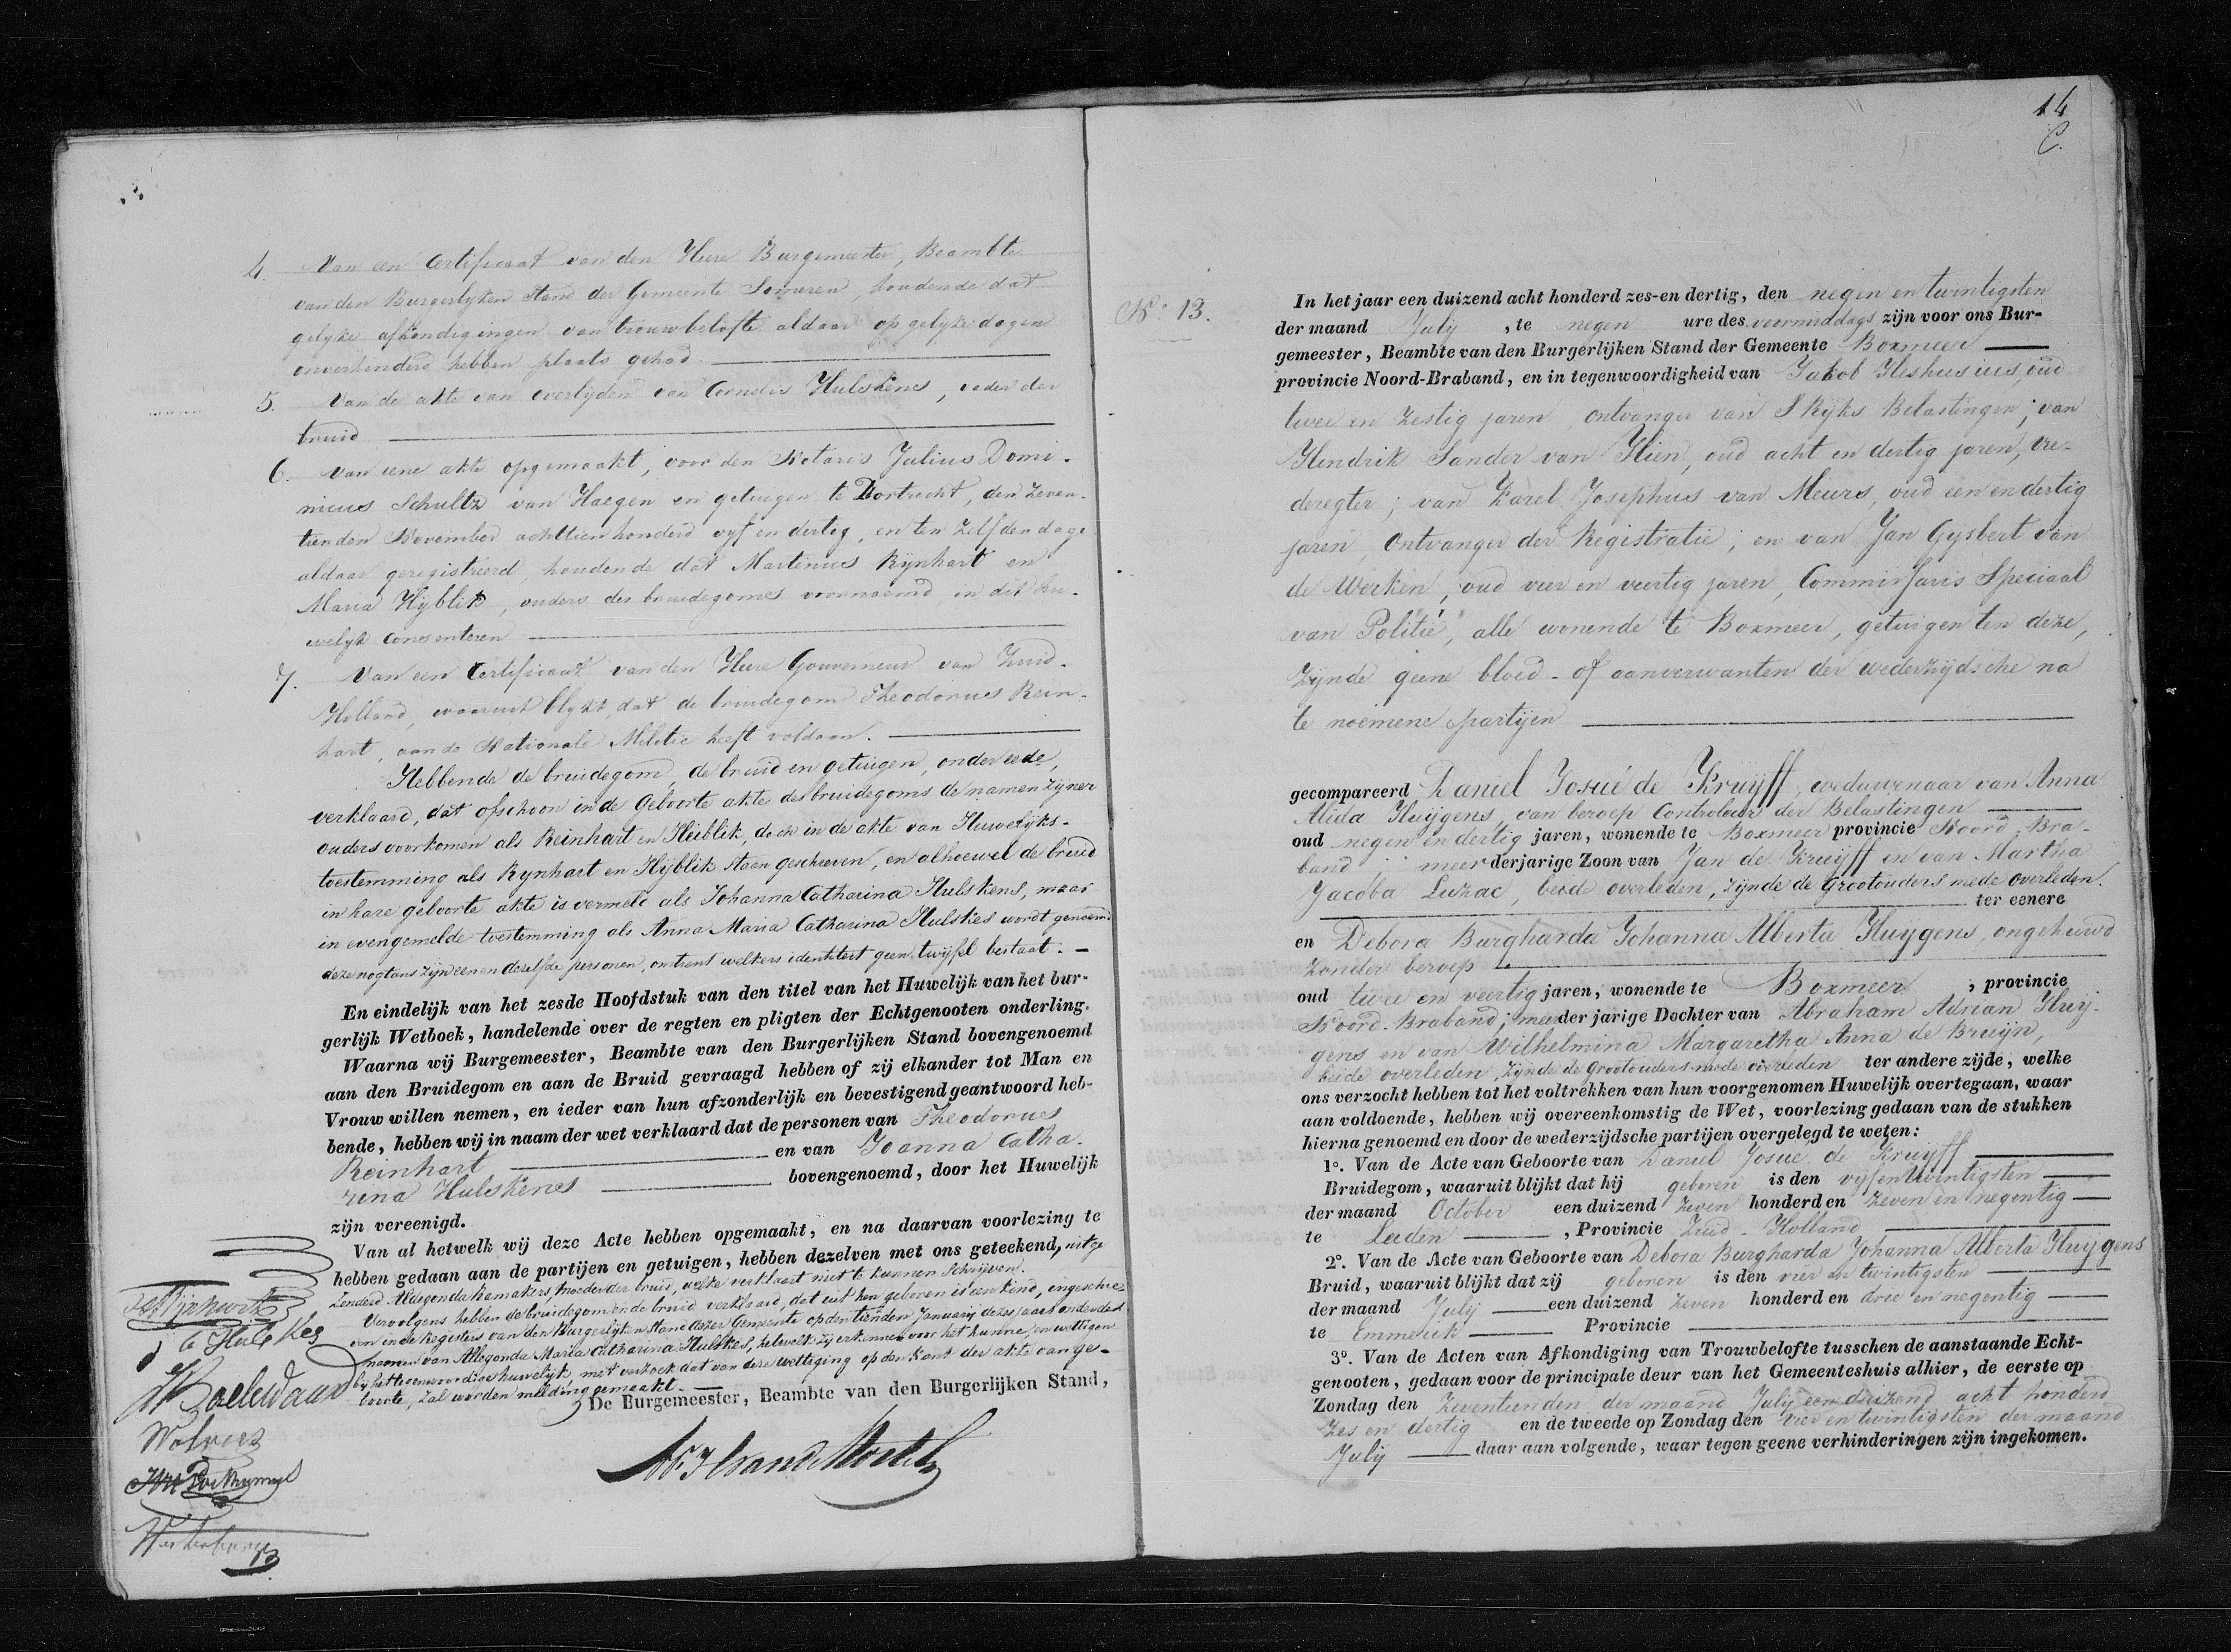 4. Van een Certificaat van den Heere Burgemeester, Beambte
van den Burgerlyken Stand der Gemeente Someren, houdende dat
gelyke afkondigingen van trouwbelofte aldaar op gelyke dagen
onverhinderd hebben plaats gehad.
5. Van de akte van overlyden van Cornelis Hulskens, vader der
bruid
6. Van eene akte opgemaakt, voor den Notaris Julius Domi-
nicus Schultz van Haegen en getuigen te Dortrecht, den zeven-
tienden November achttienhonderd vyf en dertig, en ten zelfden dage
aldaar geregistreerd, houdende dat Martinus Rynhart en
Maria Hyblik, ouders des bruidegomes voornoemd, in dit hu-
welyk consenteren
7. Van een Certificaat van den Heere Gouverneur van Zuid-
Holland, waaruit blykt, dat de bruidegom Theodorus Rein-
hart, aan de Nationale Militie heeft voldaan.
Hebbende de bruidegom, de bruid en getuigen, onder eede,
verklaard, dat ofschoon in de Geboorte akte des bruidegoms de namen zyner
ouders voorkomen als Reinhart en Heiblik, doch in de akte van Huwelyks-
toestemming als Rynhart en Hyblik staan geschreven, en alhoewel de bruid
in hare geboorte akte is vermeld als Johanna Catharina Hulskens, maar
in evengemelde toestemming als Anna Maria Catharina Hulskes wordt genoemd
deze nogtans zyn een en dezelfde personen, omtrent welkers identiteit geen twyfel bestaat.
En eindelijk van het zesde Hoofdstuk van den titel van het Huwelijk van het bur-
gerlijk Wetboek, handelende over de regten en pligten der Echtgenooten onderling.
Waarna wij Burgemeester, Beambte van den Burgerlijken Stand bovengenoemd
aan den Bruidegom en aan de Bruid gevraagd hebben of zij elkander tot Man en
Vrouw willen nemen, en ieder van hun afzonderlijk en bevestigend geantwoord heb-
bende, hebben wij in naam der wet verklaard dat de personen van Theodorus
Reinhart en van Joanna Catha-
rina Hulskens bovengenoemd, door het Huwelijk
zijn vereenigd.
Van al hetwelk wij deze Acte hebben opgemaakt, en na daarvan voorlezing te
hebben gedaan aan de partijen en getuigen, hebben dezelven met ons geteekend, uitge
zonderd Aldegonda Remakers, moeder der bruid, welke verklaart niet te kunnen Schrijven.
Vervolgens hebben de bruidegom en de bruid verklaard, dat uit hen geboren is een kind, ingeschre-
ven in de Registers van den Burgerlijken Stand dezer Gemeente op den tienden January dezes jaars onder de
namen van Allegonda Maria Catharina Hulskes, hetwelk zy erkennen voor het hunne, en wettigen
by het tegenwoordige huwelijk, met verzoek dat van deze wettiging op den kant der akte van ge-
boorte, zal worden melding gemaakt.
De Burgemeester, Beambte van den Burgerlijken Stand,
Wolvers
14
C.
No. 13.
In het jaar een duizend acht honderd zes-en dertig, den negen en twintigsten
der maand July, te negen ure des voormiddags zijn voor ons Bur-
gemeester, Beambte van den Burgerlijken Stand der Gemeente Boxmeer
provincie Noord-Braband, en in tegenwoordigheid van Jakob Heshusius, oud
twee en zestig jaren, ontvanger van S Ryks Belastingen; van
Hendrik Sander van Hien, oud acht en dertig jaren, vre-
deregter; van Karel Josephus van Meurs, oud een en dertig
jaren, Ontvanger der Registratie; en van Jan Gysbert van
de Werken, oud vier en veertig jaren, Commissaris Speciaal
van Politie, alle wonende te Boxmeer, getuigen ten deze,
zynde geene bloed- of aanverwanten der wederzydsche na
te noemene partijen
gecompareerd Daniel Josué de Kruyff, weduwenaar van Anna
Alida Huygens, van beroep Controleur der Belastingen
oud negen en dertig jaren, wonende te Boxmeer provincie Noord-Bra-
band; meerderjarige Zoon van Jan de Kruyff en van Martha
Jacoba Luzac, beide overleden, zijnde de Grootouders mede overleden.
ter eenere
en Debora Burgharda Johanna Alberta Huygens, ongehuwd
zonder beroep
oud twee en veertig jaren, wonende te Boxmeer, provincie
Noord-Braband; meerderjarige Dochter van Abraham Adrian Huy-
gens en van Wilhelmina Margaretha Anna de Bruijn,
beide overleden, zijnde de Grootouders mede overleden ter andere zijde, welke
ons verzocht hebben tot het voltrekken van hun voorgenomen Huwelijk overtegaan, waar
aan voldoende, hebben wij overeenkomstig de Wet, voorlezing gedaan van de stukken
hierna genoemd en door de wederzijdsche partijen overgelegd te weten:
1o. Van de Acte van Geboorte van Daniel Josué de Kruyff
Bruidegom, waaruit blijkt dat hij geboren is den vyfentwintigsten
der maand October een duizend zeven honderd en zeven en negentig
te Leiden, Provincie Zuid-Holland
2o. Van de Acte van Geboorte van Debora Burgharda Johanna Alberta Huygens
Bruid, waaruit blijkt dat zij geboren is den vier en twintigsten
der maand July een duizend zeven honderd en drie en negentig
te Emmerik Provincie
3o. Van de Acten van Afkondiging van Trouwbelofte tusschen de aanstaande Echt-
genooten, gedaan voor de principale deur van het Gemeenteshuis alhier, de eerste op
Zondag den Zeventienden der maand July een duizend acht honderd
zes en dertig en de tweede op Zondag den vier en twintigsten der maand
July daar aan volgende, waar tegen geene verhinderingen zijn ingekomen.